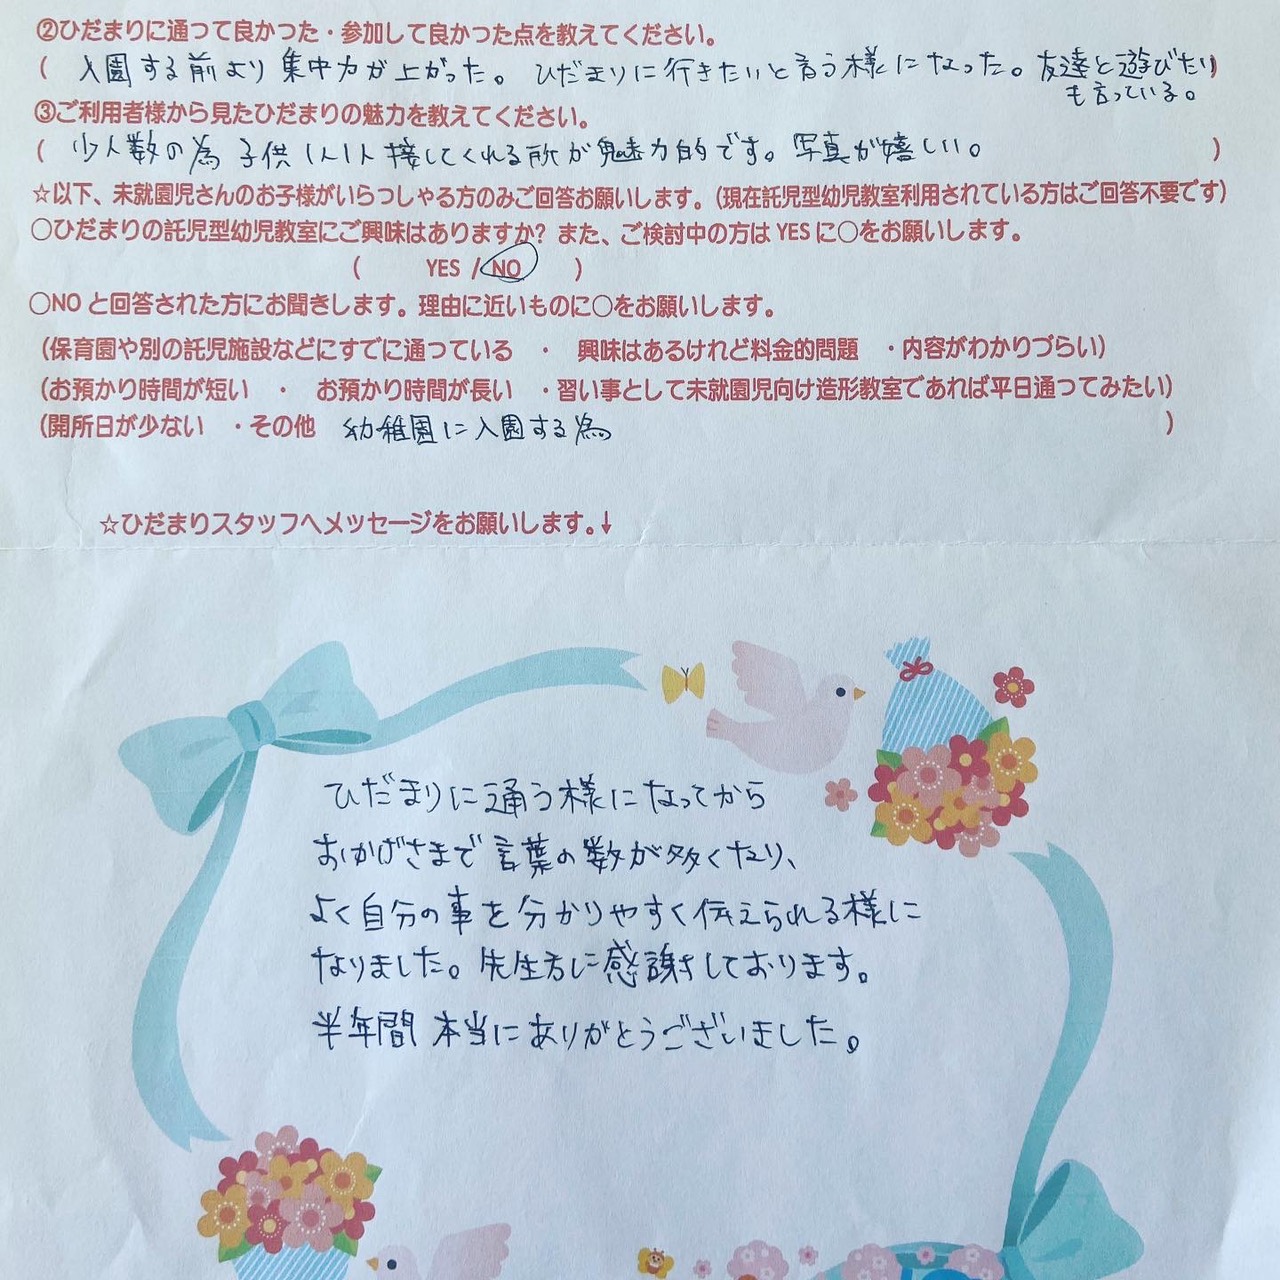 ②ひだまりに通って良かった・参加して良かった点を教えてください。
( 入園する前より集中力が上がった。ひだまりに行きたいと言う様になった。友達と遊びたい )
も言っている。
③ご利用者様から見たひだまりの魅力を教えてください。
( 少人数の為 子供1人1人接してくれる所が魅力的です。写真が嬉しい。 )
☆以下、未就園児さんのお子様がいらっしゃる方のみご回答お願いします。(現在託児型幼児教室利用されている方はご回答不要です)
○ひだまりの託児型幼児教室にご興味はありますか? また、ご検討中の方は YES に○をお願いします。
( YES / NO )
○NO と回答された方にお聞きします。理由に近いものに○をお願いします。
(保育園や別の託児施設などにすでに通っている ・ 興味はあるけれど料金的問題 ・内容がわかりづらい)
(お預かり時間が短い ・ お預かり時間が長い ・習い事として未就園児向け造形教室であれば平日通ってみたい)
(開所日が少ない ・その他 幼稚園に入園する為 )
☆ひだまりスタッフへメッセージをお願いします。↓
ひだまりに通う様になってから
おかげさまで言葉の数が多くなり、
よく自分の事を分かりやすく伝えられる様に
なりました。先生方に感謝しております。
半年間 本当にありがとうございました。